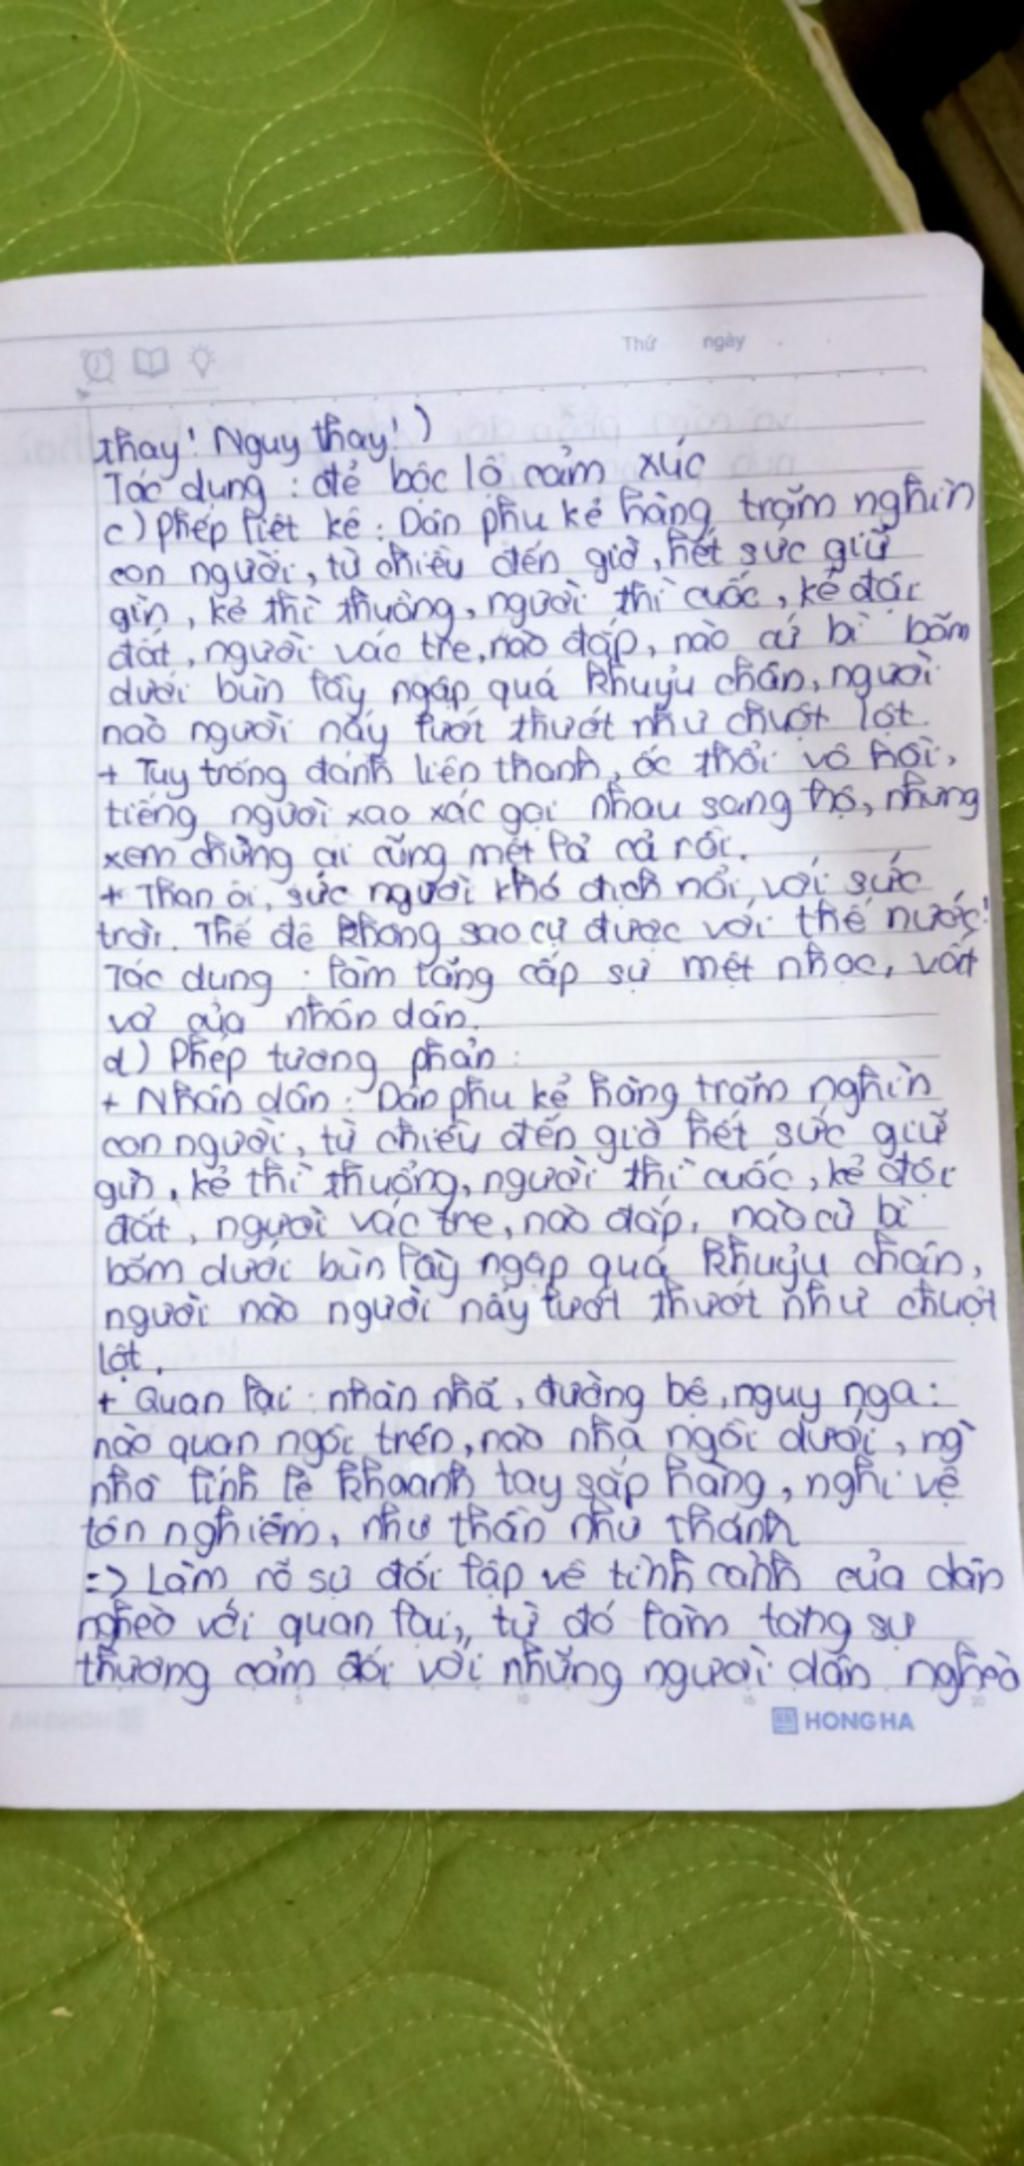 Thứ ngày
thay! Nguy thay!)
Tác dụng : để bộc lộ cảm xúc
c) Phép liệt kê : Dân phu kể hàng trăm nghìn
con người, từ chiều đến giờ, hết sức giữ
gìn, kẻ thì thuổng, người thì cuốc, kẻ đội
đất, người vác tre, nào đắp, nào cừ bì bõm
dưới bùn lầy ngập quá khuỷu chân, người
nào người nấy lướt thướt như chuột lột.
+ Tuy trống đánh liên thanh, ốc thổi vô hồi,
tiếng người xao xác gọi nhau sang hộ, nhưng
xem chừng ai cũng mệt lả cả rồi.
+ Than ôi, sức người khó địch nổi với sức
trời. Thế đê không sao cự được với thế nước!
Tác dụng : làm tăng cấp sự mệt nhọc, vất
vả của nhân dân.
d) Phép tương phản :
+ Nhân dân : Dân phu kể hàng trăm nghìn
con người, từ chiều đến giờ hết sức giữ
gìn, kẻ thì thuổng, người thì cuốc, kẻ đội
đất, người vác tre, nào đắp, nào cừ bì
bõm dưới bùn lầy ngập quá khuỷu chân,
người nào người nấy lướt thướt như chuột
lột.
+ Quan lại : nhàn nhã, đường bệ, nguy nga :
nào quan ngồi trên, nào nha ngồi dưới, ng
nhà lính lệ khoanh tay sắp hàng, nghi vệ
tôn nghiêm, như thần như thánh
=> Làm rõ sự đối lập về tình cảnh của dân
nghèo với quan lại, từ đó làm tăng sự
thương cảm đối với những người dân nghèo
HONG HA